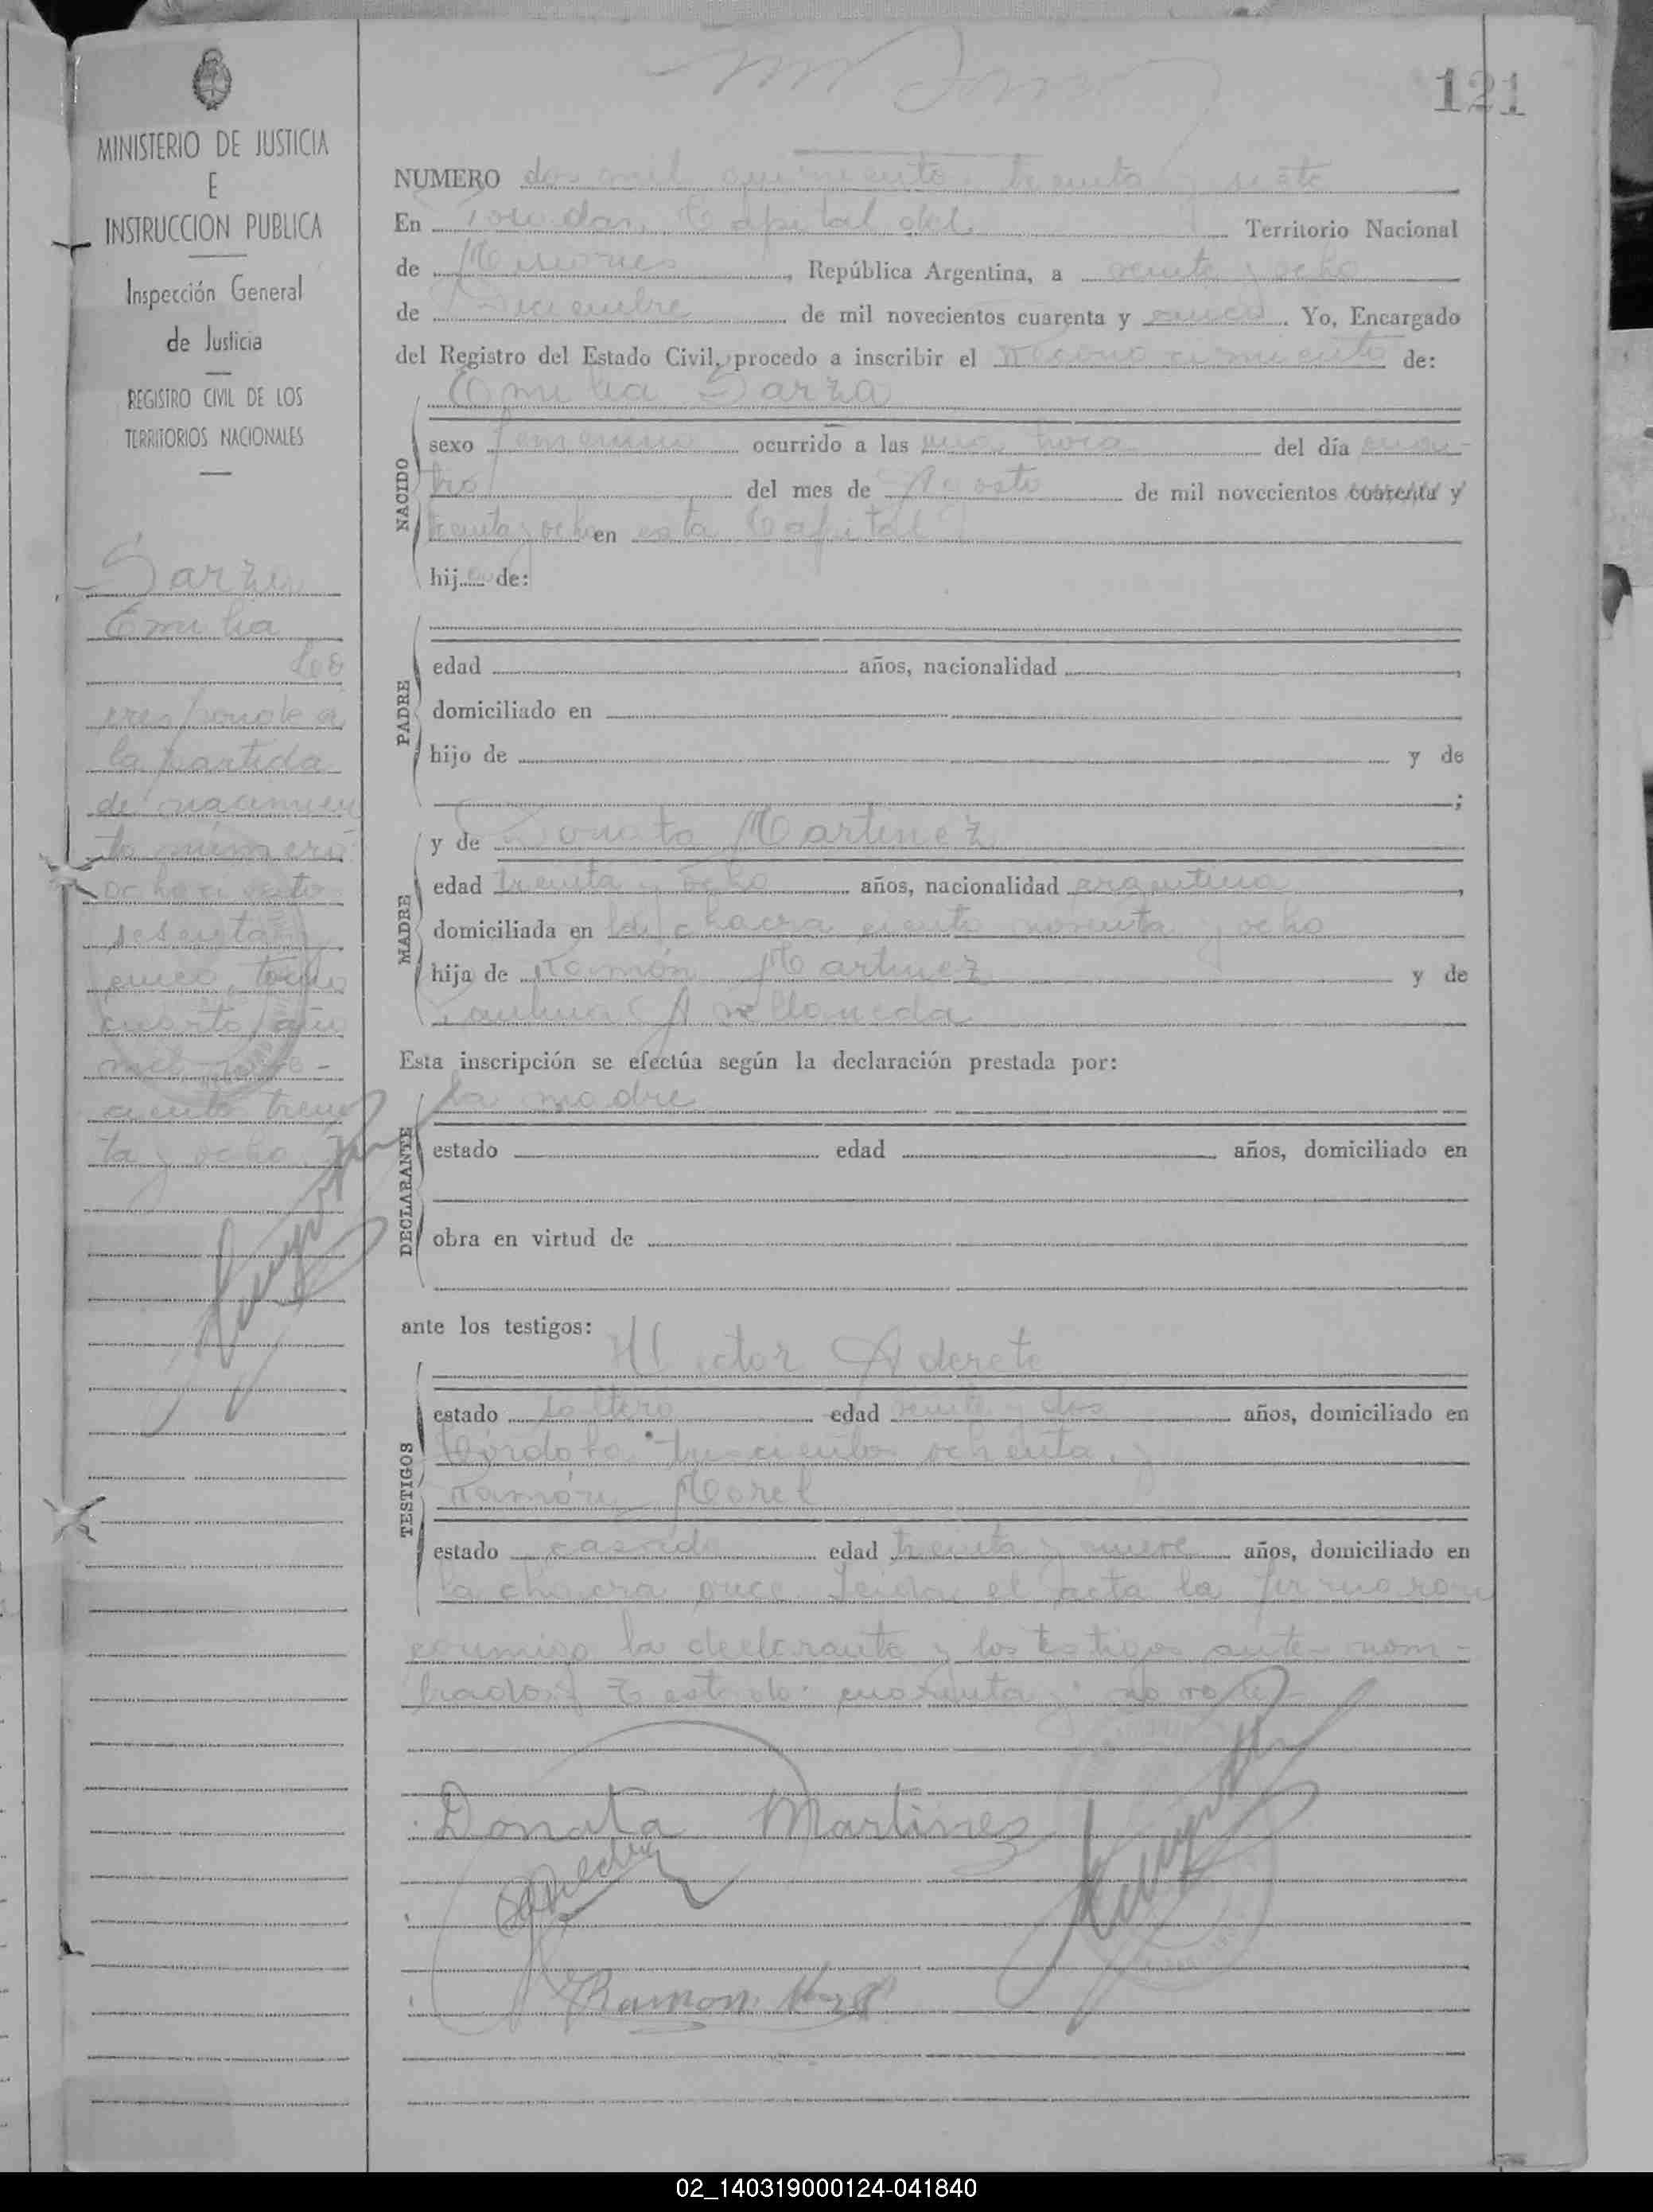 121
MINISTERIO DE JUSTICIA
E
INSTRUCCION PUBLICA
Inspección General
de Justicia
REGISTRO CIVIL DE LOS
TERRITORIOS NACIONALES
Sarza
Emilia
Co
rresponde a
la partida
de nacimien
to número
ochocientos
sesenta y
cinco, tomo
cuarto, año
mil nove-
cientos trein
ta y ocho
NUMERO dos mil quinientos treinta y siete
En Posadas, Capital del Territorio Nacional
de Misiones, República Argentina, a veinte y ocho
de Diciembre de mil novecientos cuarenta y cinco. Yo, Encargado
del Registro del Estado Civil, procedo a inscribir el Reconocimiento de:
Emilia Sarza
NACIDO
sexo femenino ocurrido a las una hora del día cua-
tro del mes de Agosto de mil novecientos cuarenta y
treinta y ocho en esta Capital
hija de:
PADRE
edad años, nacionalidad ,
domiciliado en
hijo de y de
;
MADRE
y de Donata Martinez
edad treinta y ocho años, nacionalidad argentina,
domiciliada en la chacra ciento noventa y ocho
hija de Ramón Martinez y de
Paulina Avellaneda
Esta inscripción se efectúa según la declaración prestada por:
DECLARANTE
la madre
estado edad años, domiciliado en
obra en virtud de
ante los testigos:
TESTIGOS
Hector Alderete
estado soltero edad veinte y dos años, domiciliado en
Córdoba trescientos ochenta y
Ramón Morel
estado casado edad treinta y nueve años, domiciliado en
la chacra once. Leida el acta la firmaron
conmigo la declarante y los testigos ante nom-
brados. Testado: cuarenta y: no vale
Donata Martinez
Ramon
02_140319000124-041840